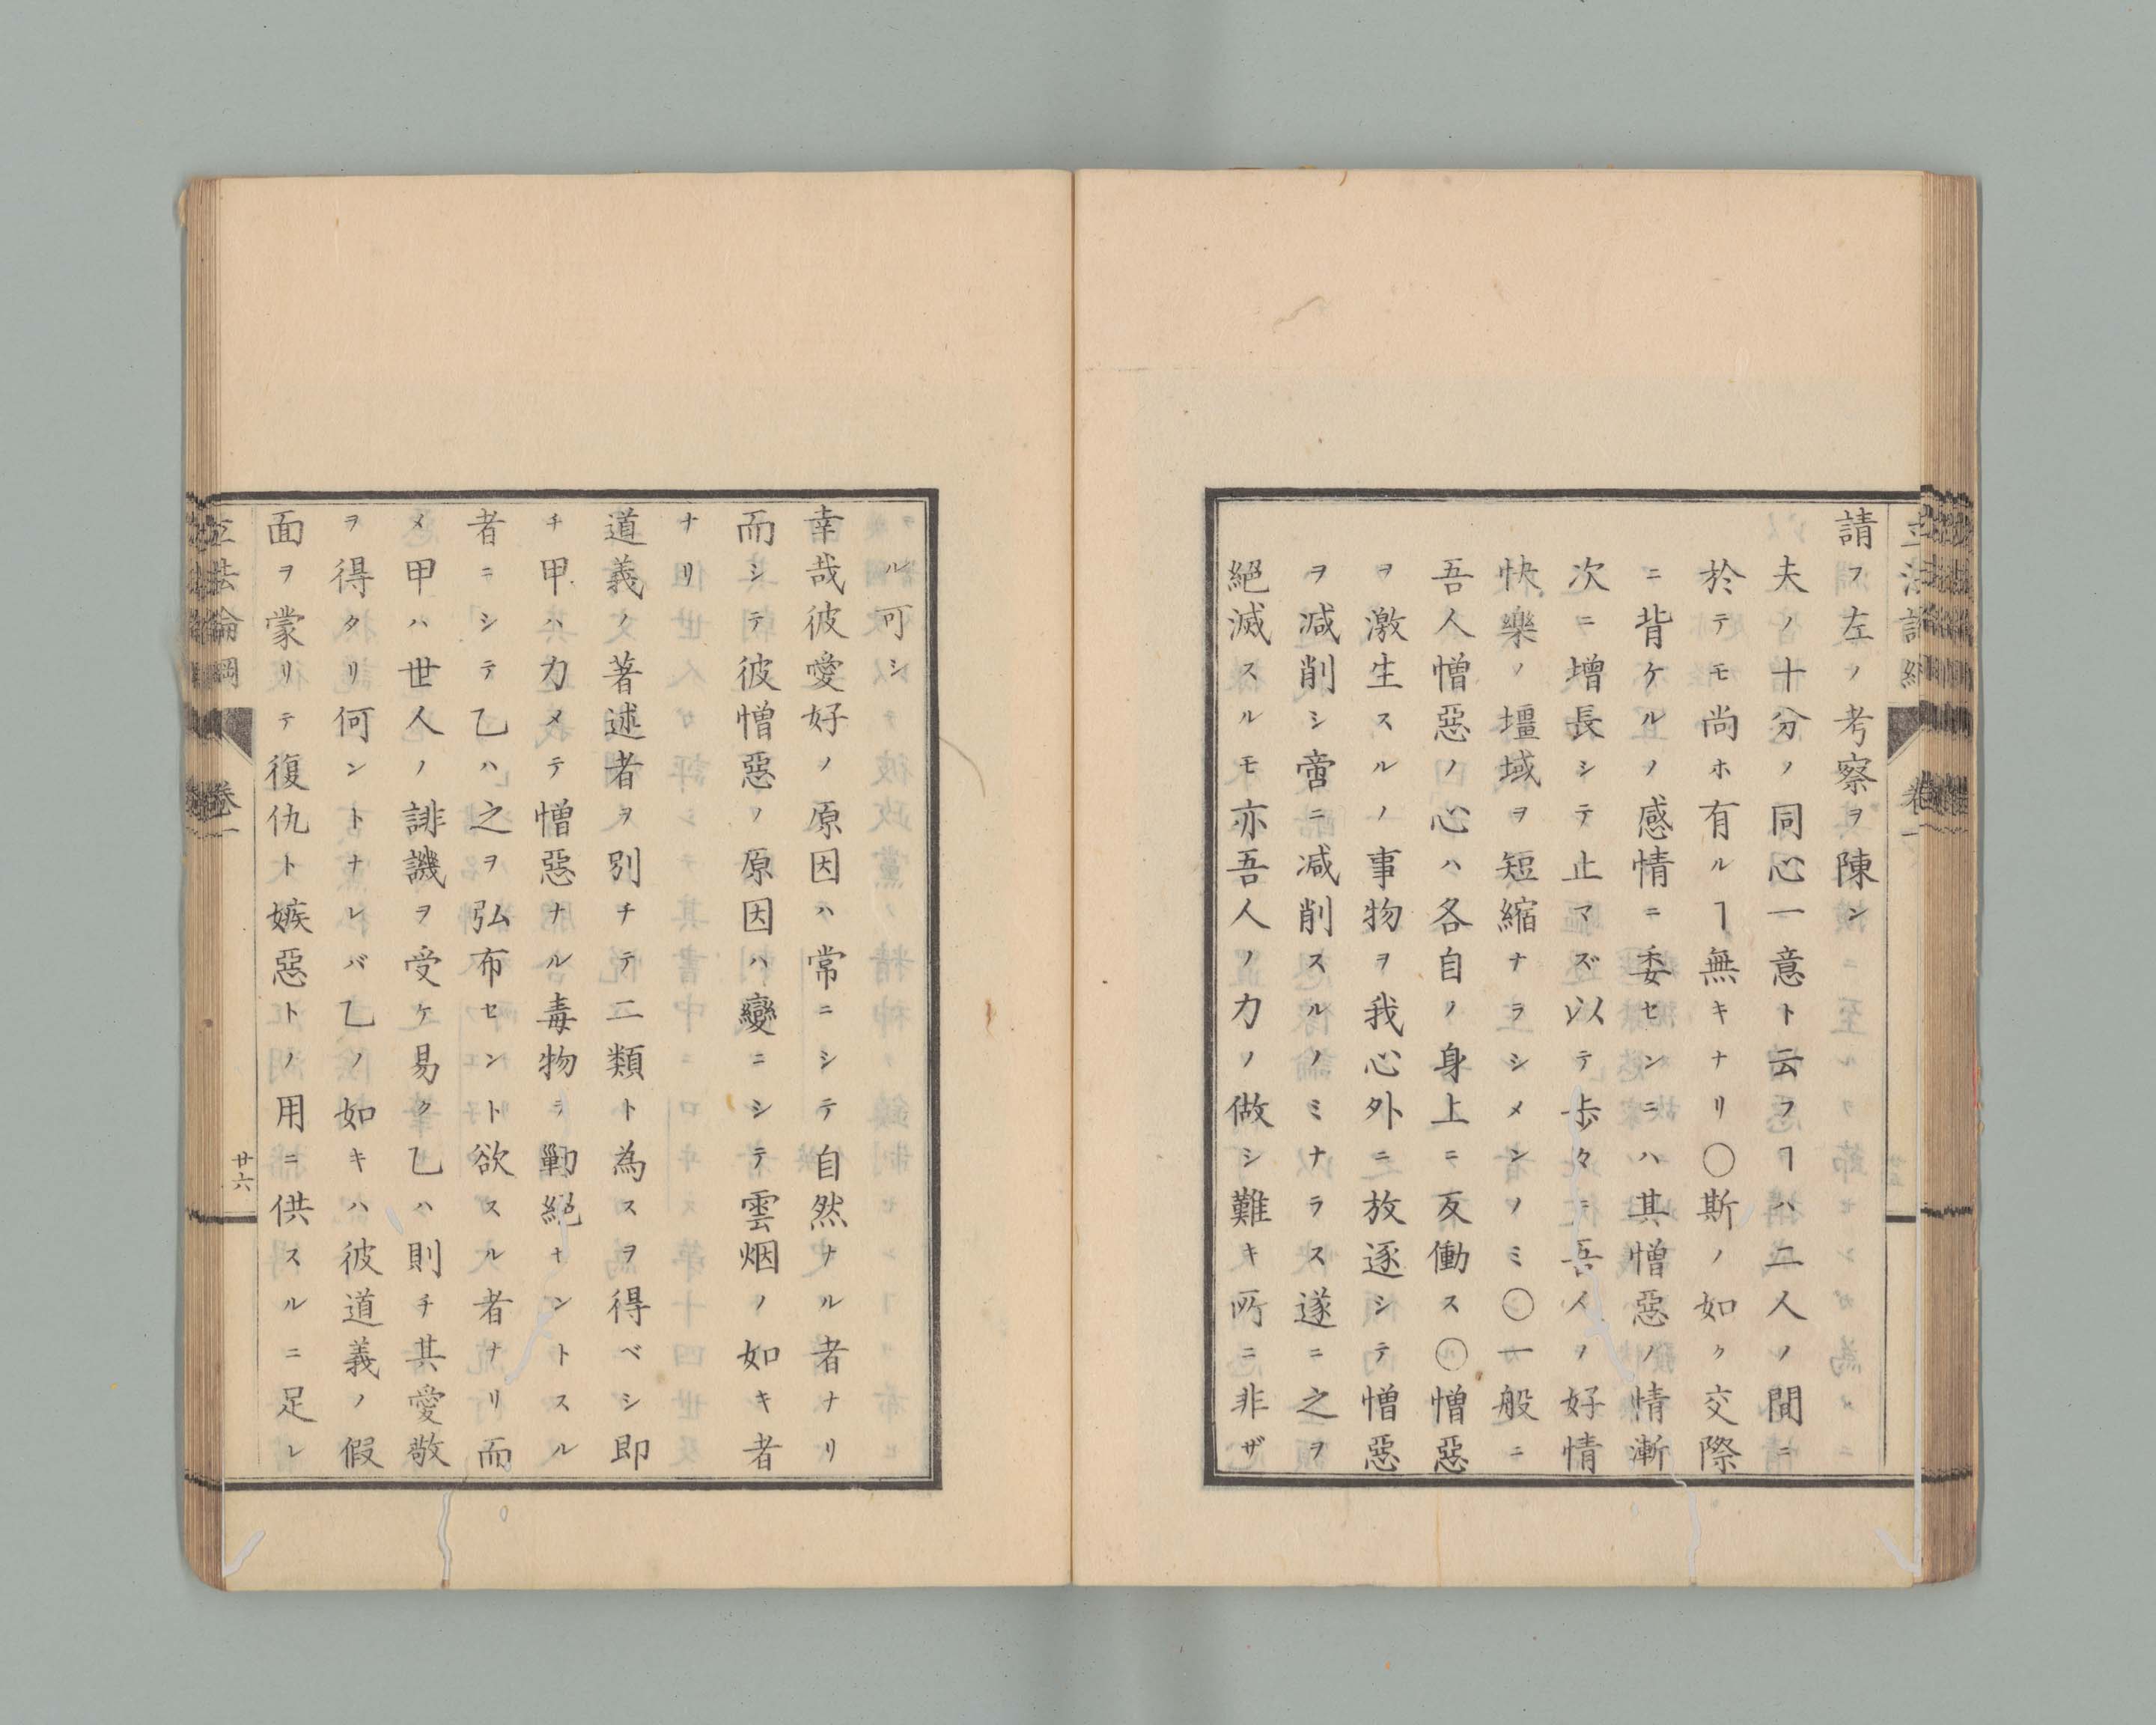 請フ左ノ考察ヲ陳ン
夫ノ十分ノ同心一意ト云フヿハ二人ノ間ニ
於テモ尚ホ有ルヿ無キナリ〇斯ノ如ク交際
ニ背ケルノ感情ニ委センニハ其憎惡ノ情漸
次ニ增長シテ止マズ以テ歩々ニ吾人ノ好情
快樂ノ壃域ヲ短縮ナラシメンノミ〇一般ニ
吾人憎惡ノ心ハ各自ノ身上ニ反働ス〇憎惡
ヲ激生スルノ事物ヲ我心外ニ放逐シテ憎惡
ヲ减削シ啻ニ减削スルノミナラス遂ニ之ヲ
絕滅スルモ亦吾人ノ力ノ做シ難キ所ニ非ザ
ル可シ
幸哉彼愛好ノ原因ハ常ニシテ自然ナル者ナリ
而シテ彼憎惡ノ原因ハ變ニシテ雲烟ノ如キ者
ナリ
道義ノ著述者ヲ別チテ二類ト為スヲ得ベシ即
チ甲ハ力メテ憎惡ナル毒物ヲ勦絕セントスル
者ニシテ乙ハ之ヲ弘布セント欲スル者ナリ而
メ甲ハ世人ノ誹譏ヲ受ケ易ク乙ハ則チ其愛敬
ヲ得タリ何ントナレバ乙ノ如キハ彼道義ノ假
面ヲ蒙リテ復仇ト嫉惡トノ用ニ供スルニ足レ
立法論綱
卷一
廿六